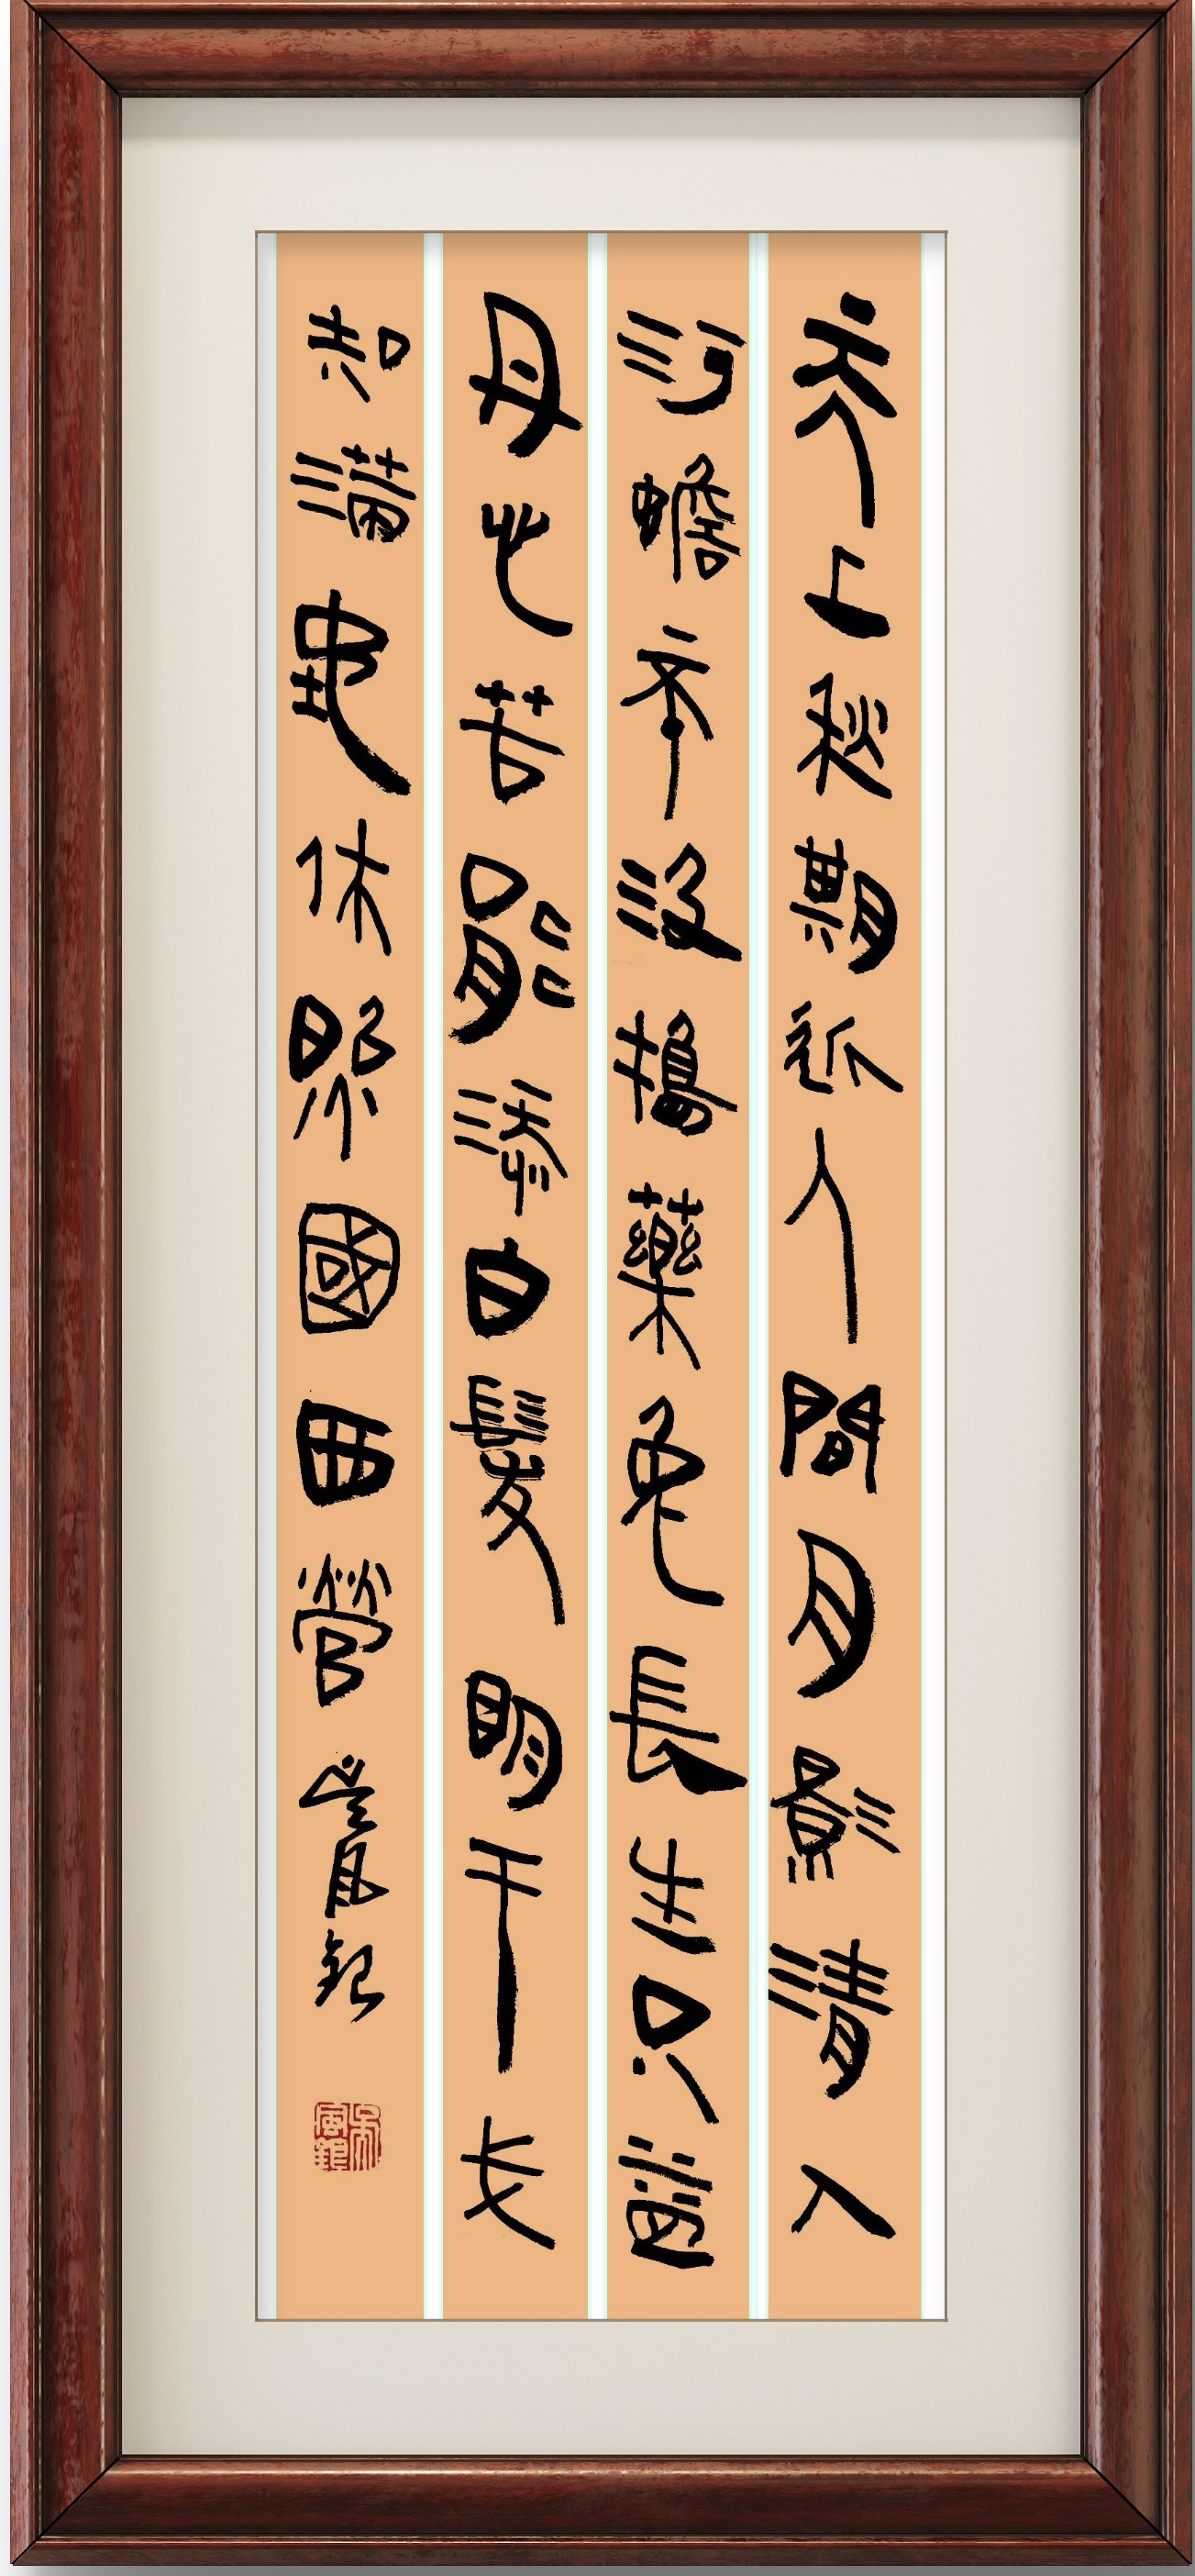 天上秋期近人間月影清入
河蟾不沒搗藥兔長生只益
丹心苦能添白髮明干戈
知滿地休照國西營